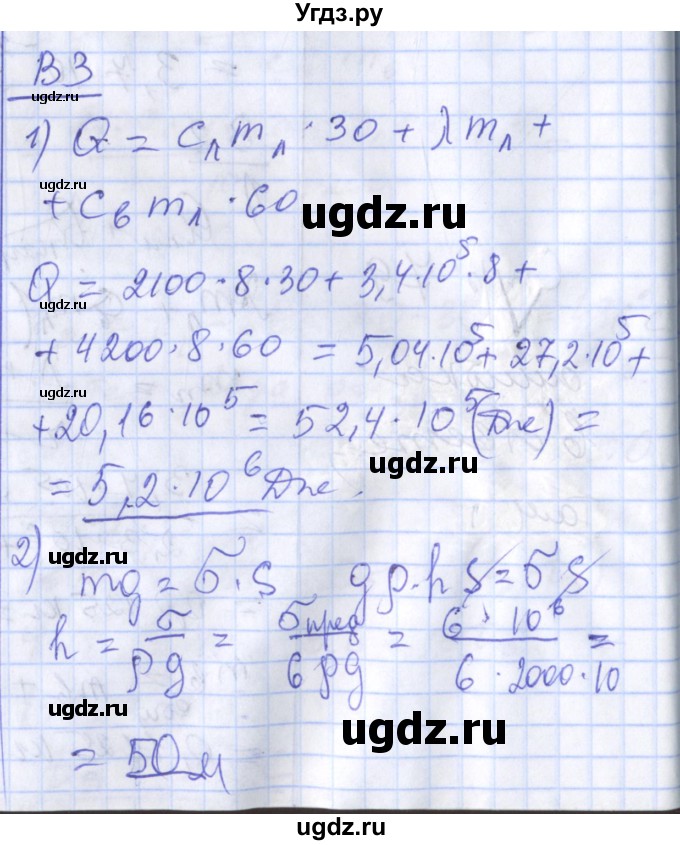 Угдз.ру
В3
ugdz.ru
1) Q = cлmл·30 + λmл +
ugdz.ru
+ cвmл·60
ugdz.ru
Q = 2100·8·30 + 3,4·10⁵·8 +
ugdz.ru
+ 4200·8·60 = 5,04·10⁵ + 27,2·10⁵ +
ugdz.ru
+ 20,16·10⁵ = 52,4·10⁵ (Дж) =
ugdz.ru
= 5,2·10⁶ Дж.
ugdz.ru
2) mg = σ·S gρ·hS = σS
h = σ/ρg = σпред/6ρg = 6·10⁶/6·2000·10 =
ugdz.ru
ugdz.ru
= 50 м
ugdz.ru
ugdz.ru